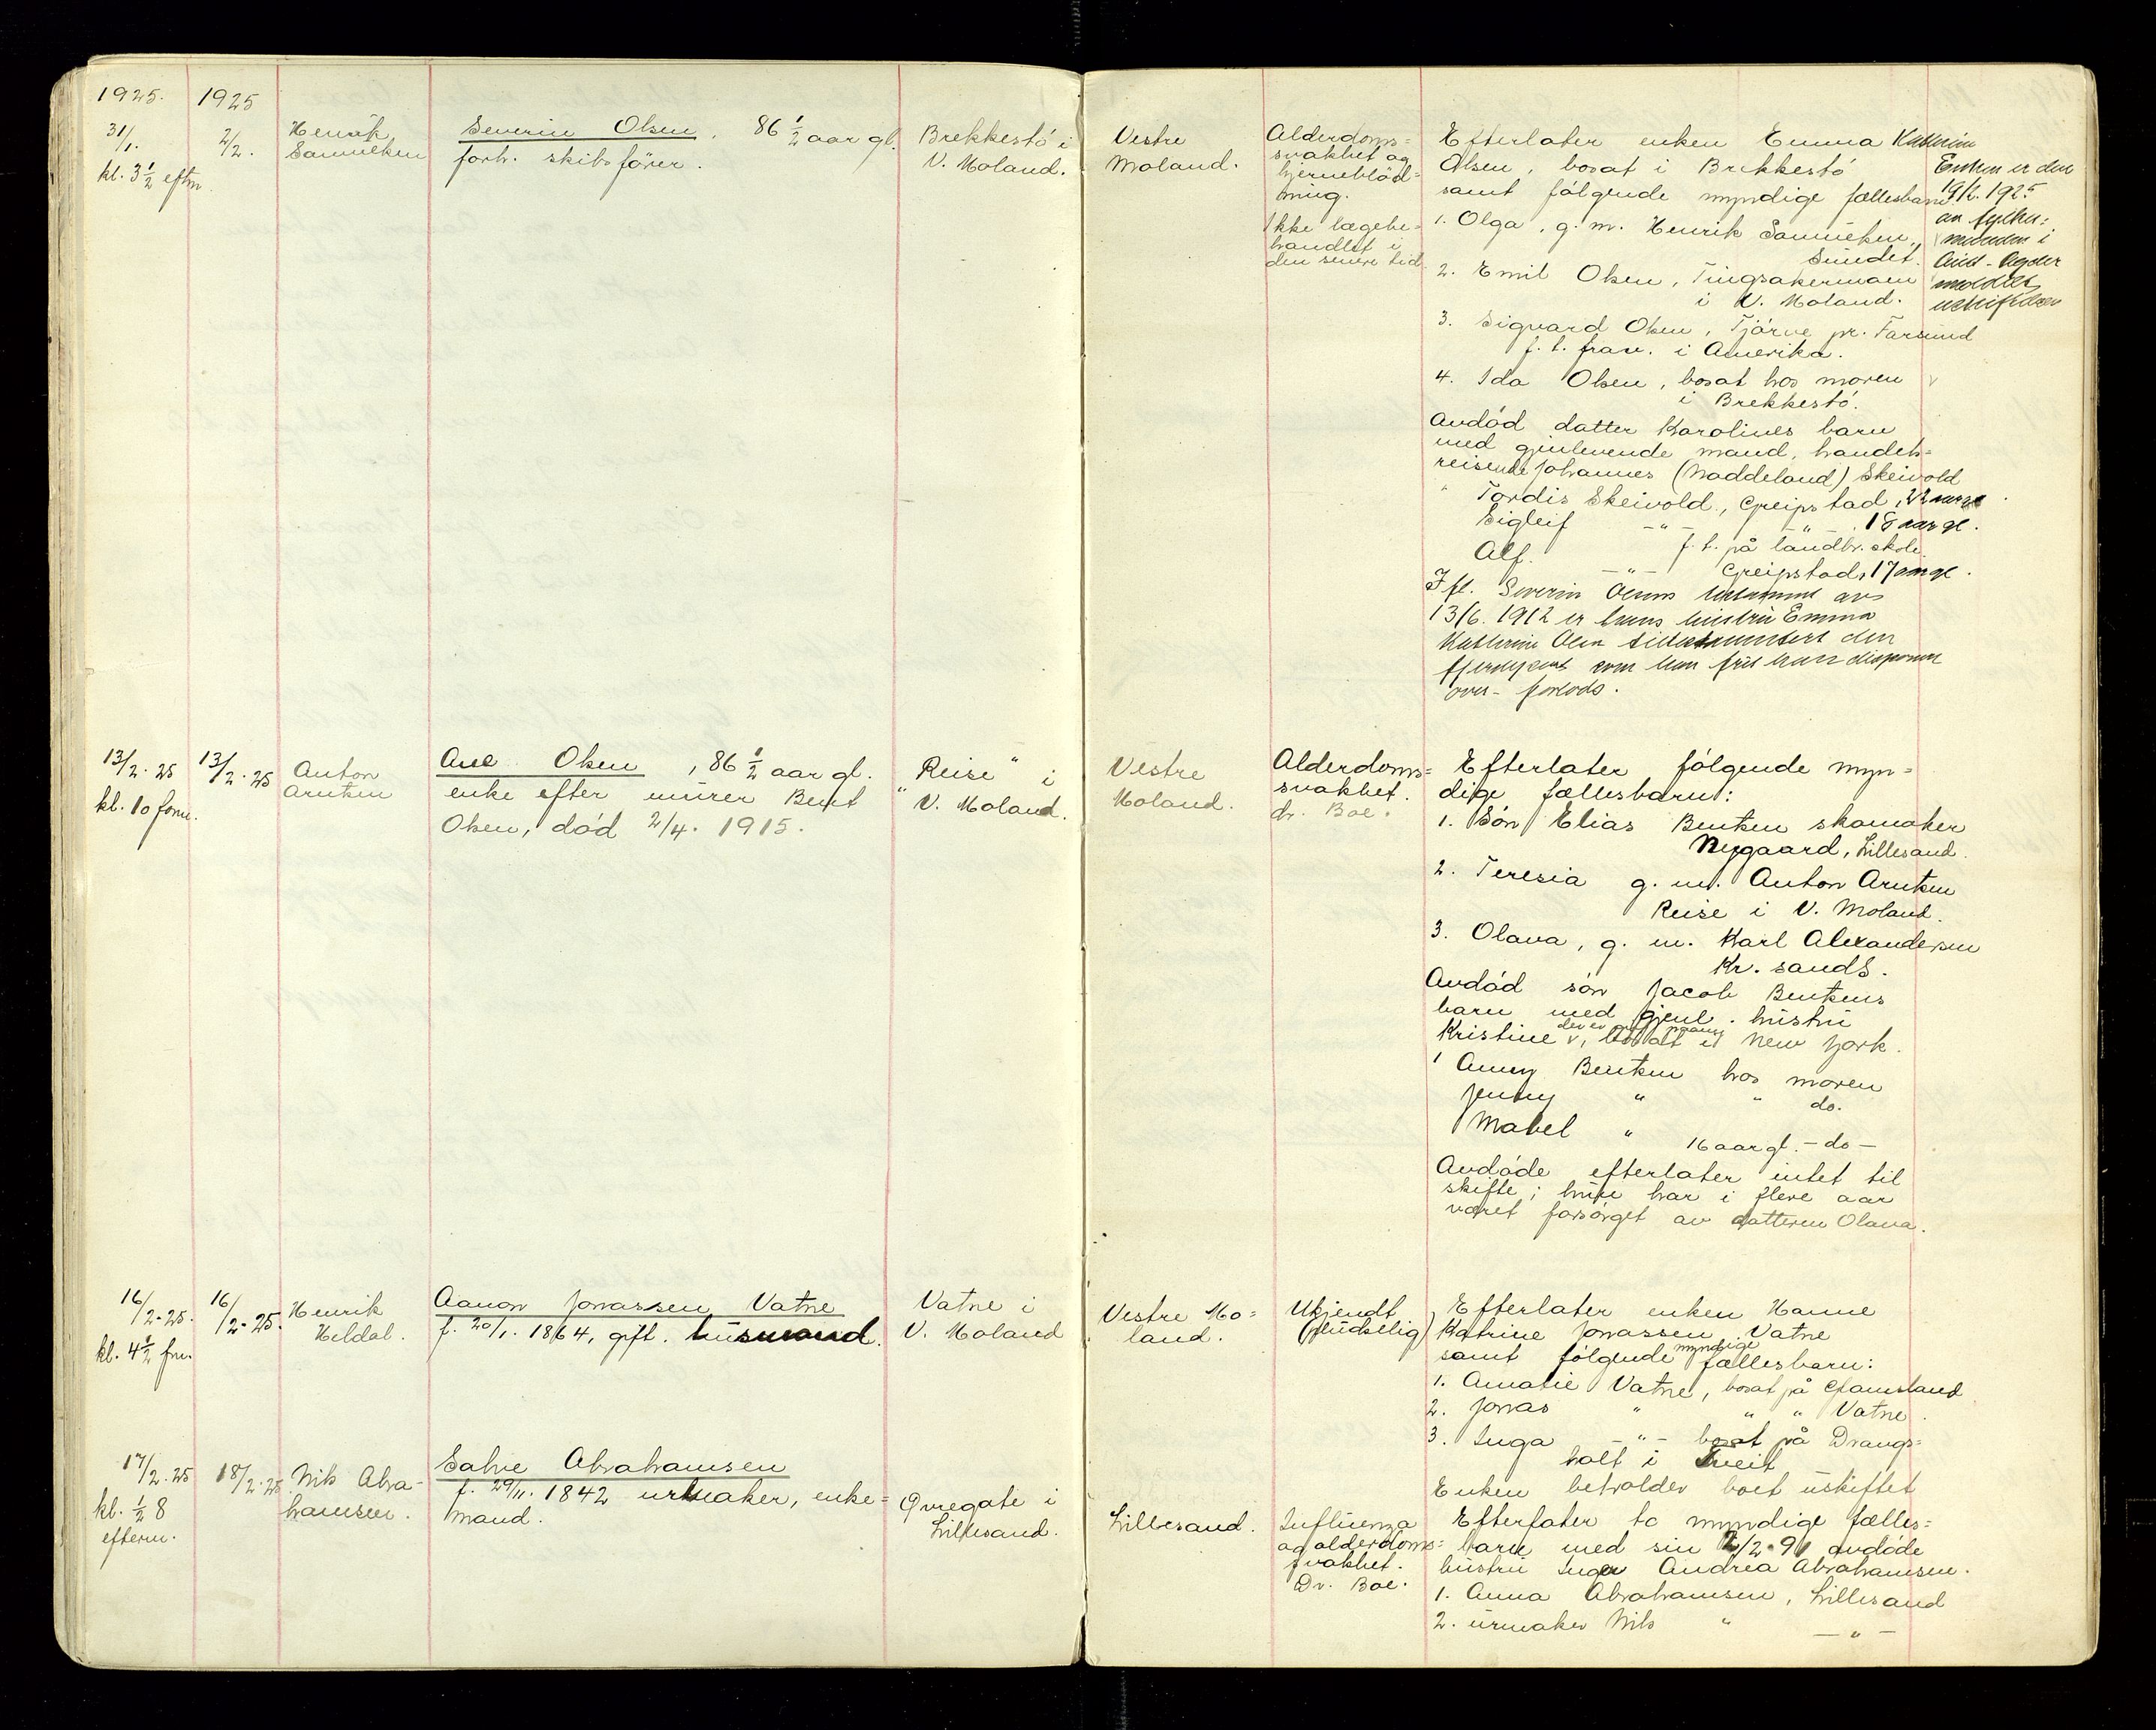 1925. 1925
31/1. 2/2. Henrik Severin Olsen, 86 1/2 aar gl. Brekkestö i
kl. 3 1/2 eftm. Samuelsen forh. skibsförer. V. Moland.
13/2. 25 13/2. 25 Anton Ane Olsen, 86 1/2 aar gl. "Reise" i
kl. 10 form. Arntsen enke efter murer Bent V. Moland.
Olsen, död 2/4. 1915.
16/2-25. 16/2-25. Henrik Aanon Jonassen Vatne Vatne i
kl. 4 1/2 fm. Heldal. f. 20/1. 1864, gift. husmand. V. Moland
17/2.25 18/2.25 Nils Abra- Salve Abrahamsen
kl. 1/2 8 hamsen. f. 29/11. 1842 urmaker, enke= Övregate i
efterm. mand. Lillesand.
Vestre
Moland.
Alderdoms=
svakhet og
hjerneblöd=
ning.
Ikke lægebe=
handlet i
den senere tid
Efterlater enken Emma Kathrine
Olsen, bosat i Brekkestö
samt fölgende myndige fællesbarn
1. Olga, g. m. Henrik Samuelsen,
Sundet.
2. Emil Olsen, Tingsakermoen
i V. Moland.
3. Sigvard Olsen, Tjörve pr. Farsund
f. t. frav. i Amerika.
4. Ida Olsen, bosat hos moren
i Brekkestö.
Enken er den
19/2. 1925
av fylkes=
manden i
Aust-Agder
meddelt
uskiftebevilling
Avdöd datter Karolines barn
med gjenlevende mand, handels=
reisende Johannes (Naddeland) Skeivold
Tordis Skeivold, Greipstad, 22 aar gl
Sigleif -"- -"-, 18 aar gl.
f. t. på landbr. skole.
Alf. -"- Greipstad, 17 aar gl.
Ifl. Severin Olsens testamente av
13/6. 1912 er hans hustru Emma
Kathrine Olsen tiltestamentert den
fjerdepart som han frit kan disponere
over - forlods.
Vestre
Moland.
Alderdoms=
svakhet.
dr. Boe.
Efterlater fölgende myn=
dige fællesbarn:
1. Sön Elias Bentsen skomaker
Nygaard, Lillesand.
2. Teresia g. m. Anton Arntsen
Reise i V. Moland.
3. Olava, g. m. Karl Alexandersen
Kr. sandS.
Avdöd sön Jacob Bentsens
barn med gjenl. hustru
Kristine der er gift paany, bosat i New York.
1 Anny Bentsen hos moren
Jenny " " do.
Mabel " 16 aar gl. - do -
Avdöde efterlater intet til
skifte; hun har i flere aar
været forsörget av datteren Olava.
Vestre Mo=
land.
Ukjendt
(pludselig)
Efterlater enken Hanne
Katrine Jonassen Vatne
samt fölgende myndige fællesbarn:
1. Amalie Vatne, bosat på Glamsland
2. Jonas " " " Vatne.
3. Inga -"- bosat på Drangs=
holt i Tveit
Enken beholder boet uskiftet
Lillesand.
Influenza
og alderdoms=
svakhet.
Dr. Boe.
Efterlater to myndige fælles=
barn med sin 2/2-91 avdöde
hustru Inger Andrea Abrahamsen.
1. Anna Abrahamsen, Lillesand
2. urmaker Nils " -"-